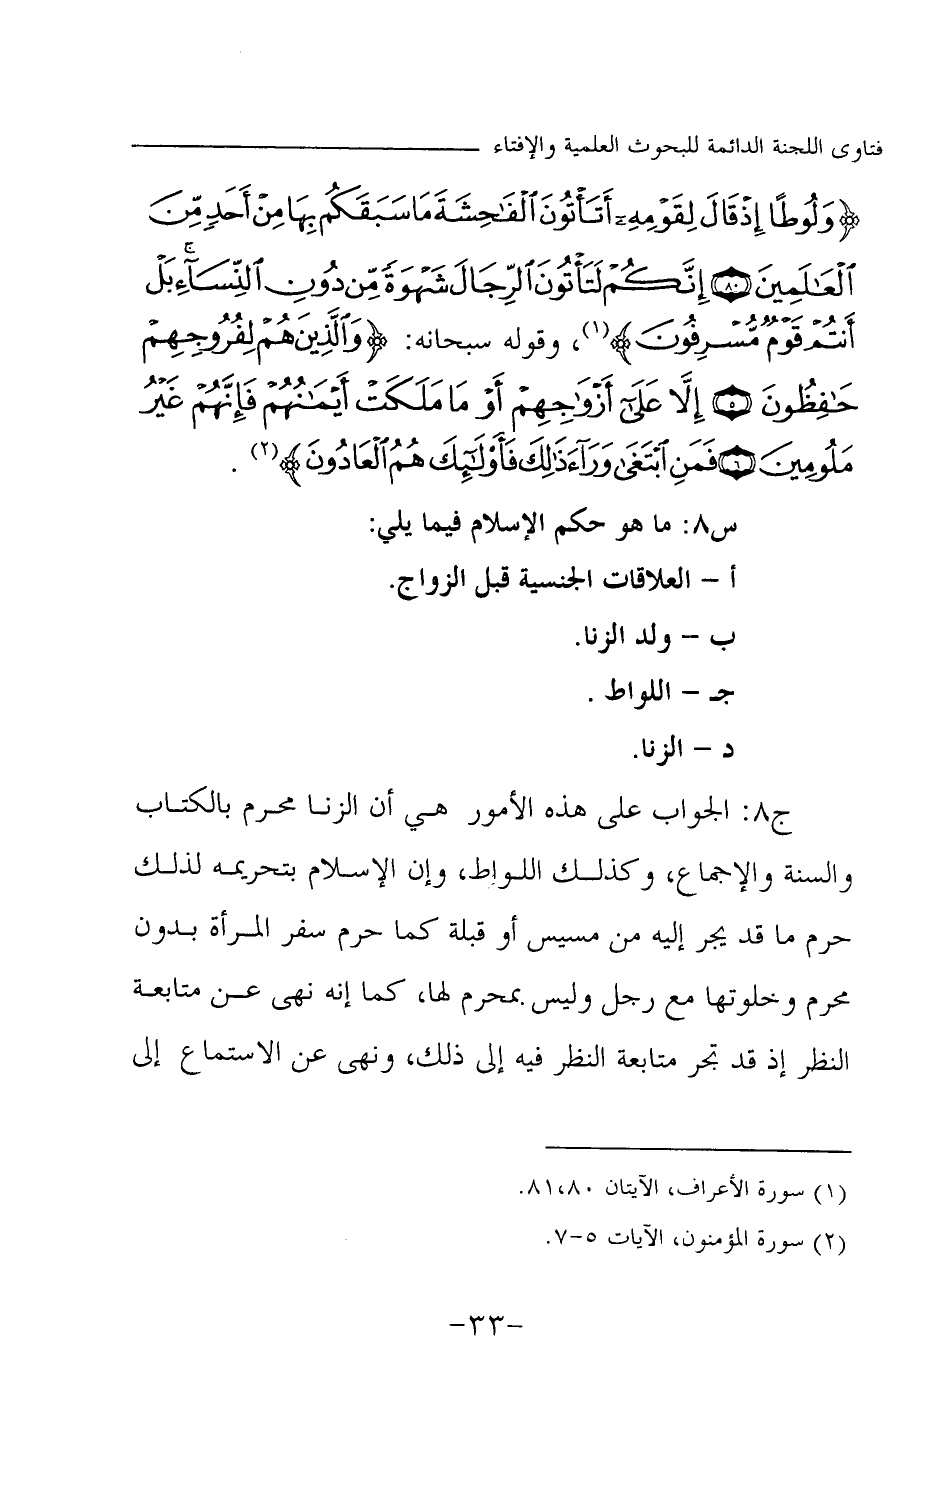 فتاوى اللجنة الدائمة للبحوث العلمية والإفتاء
﴿وَلُوطًا إِذْ قَالَ لِقَوْمِهِۦٓ أَتَأْتُونَ ٱلْفَـٰحِشَةَ مَا سَبَقَكُم بِهَا مِنْ أَحَدٍ مِّنَ
ٱلْعَـٰلَمِينَ ٨٠ إِنَّكُمْ لَتَأْتُونَ ٱلرِّجَالَ شَهْوَةً مِّن دُونِ ٱلنِّسَآءِ ۚ بَلْ
أَنتُمْ قَوْمٌ مُّسْرِفُونَ﴾(١)، وقوله سبحانه: ﴿وَٱلَّذِينَ هُمْ لِفُرُوجِهِمْ
حَـٰفِظُونَ ٥ إِلَّا عَلَىٰٓ أَزْوَٰجِهِمْ أَوْ مَا مَلَكَتْ أَيْمَـٰنُهُمْ فَإِنَّهُمْ غَيْرُ
مَلُومِينَ ٦ فَمَنِ ٱبْتَغَىٰ وَرَآءَ ذَٰلِكَ فَأُو۟لَـٰٓئِكَ هُمُ ٱلْعَادُونَ﴾(٢) .
س٨: ما هو حكم الإسلام فيما يلي:
أ – العلاقات الجنسية قبل الزواج.
ب – ولد الزنا.
جـ – اللواط .
د – الزنا.
ج٨: الجواب على هذه الأمور هـي أن الزنـا محرم بالكتـاب
والسنة والإجماع، وكذلـك اللواط، وإن الإسـلام بتحريمـه لذلـك
حرم ما قد يجر إليه من مسيس أو قبلة كما حرم سفر المـرأة بـدون
محرم وخلوتها مع رجل وليس بمحرم لها، كما إنه نهى عـن متابعـة
النظر إذ قد تجر متابعة النظر فيه إلى ذلك، ونهى عن الاستماع إلى
(١) سورة الأعراف، الآيتان ٨١،٨٠.
(٢) سورة المؤمنون، الآيات ٥-٧.
-٣٣-